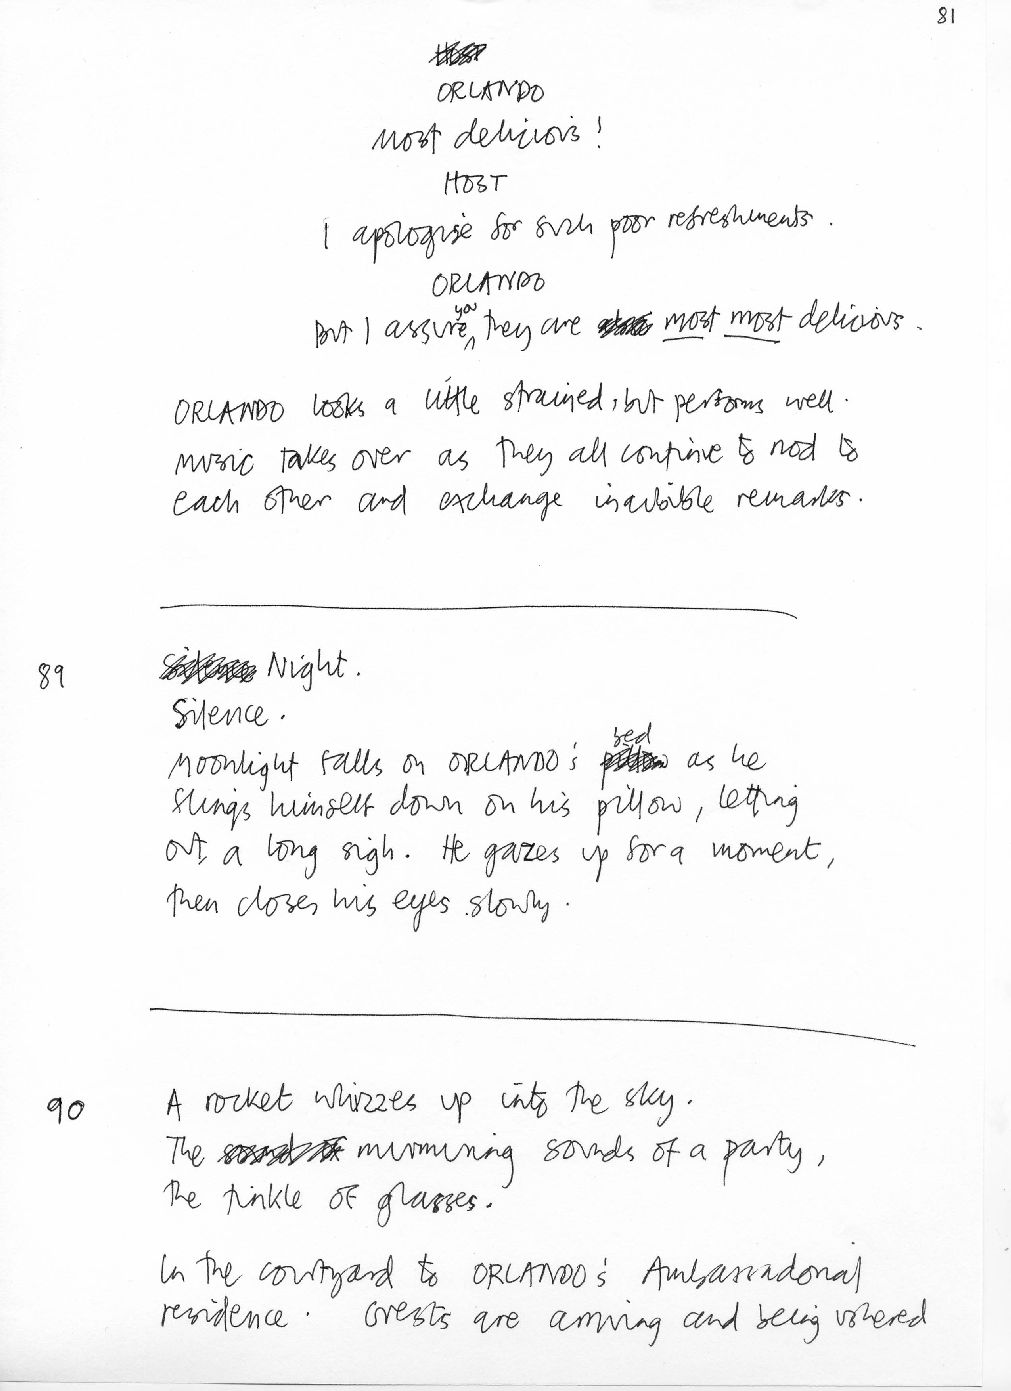 81
ORLANDO
Most delicious!
HOST
I apologise for such poor refreshments.
ORLANDO
But I assure you they are most most delicious.
ORLANDO looks a little strained, but performs well.
Music takes over as they all continue to nod to
each other and exchange inaudible remarks.
89 Night.
Silence.
Moonlight falls on ORLANDO's bed as he
flings himself down on his pillow, letting
out a long sigh. He gazes up for a moment,
then closes his eyes slowly.
90 A rocket whizzes up into the sky.
The murmuring sounds of a party,
the tinkle of glasses.
In the courtyard to ORLANDO's Ambassadorial
residence. Guests are arriving and being ushered